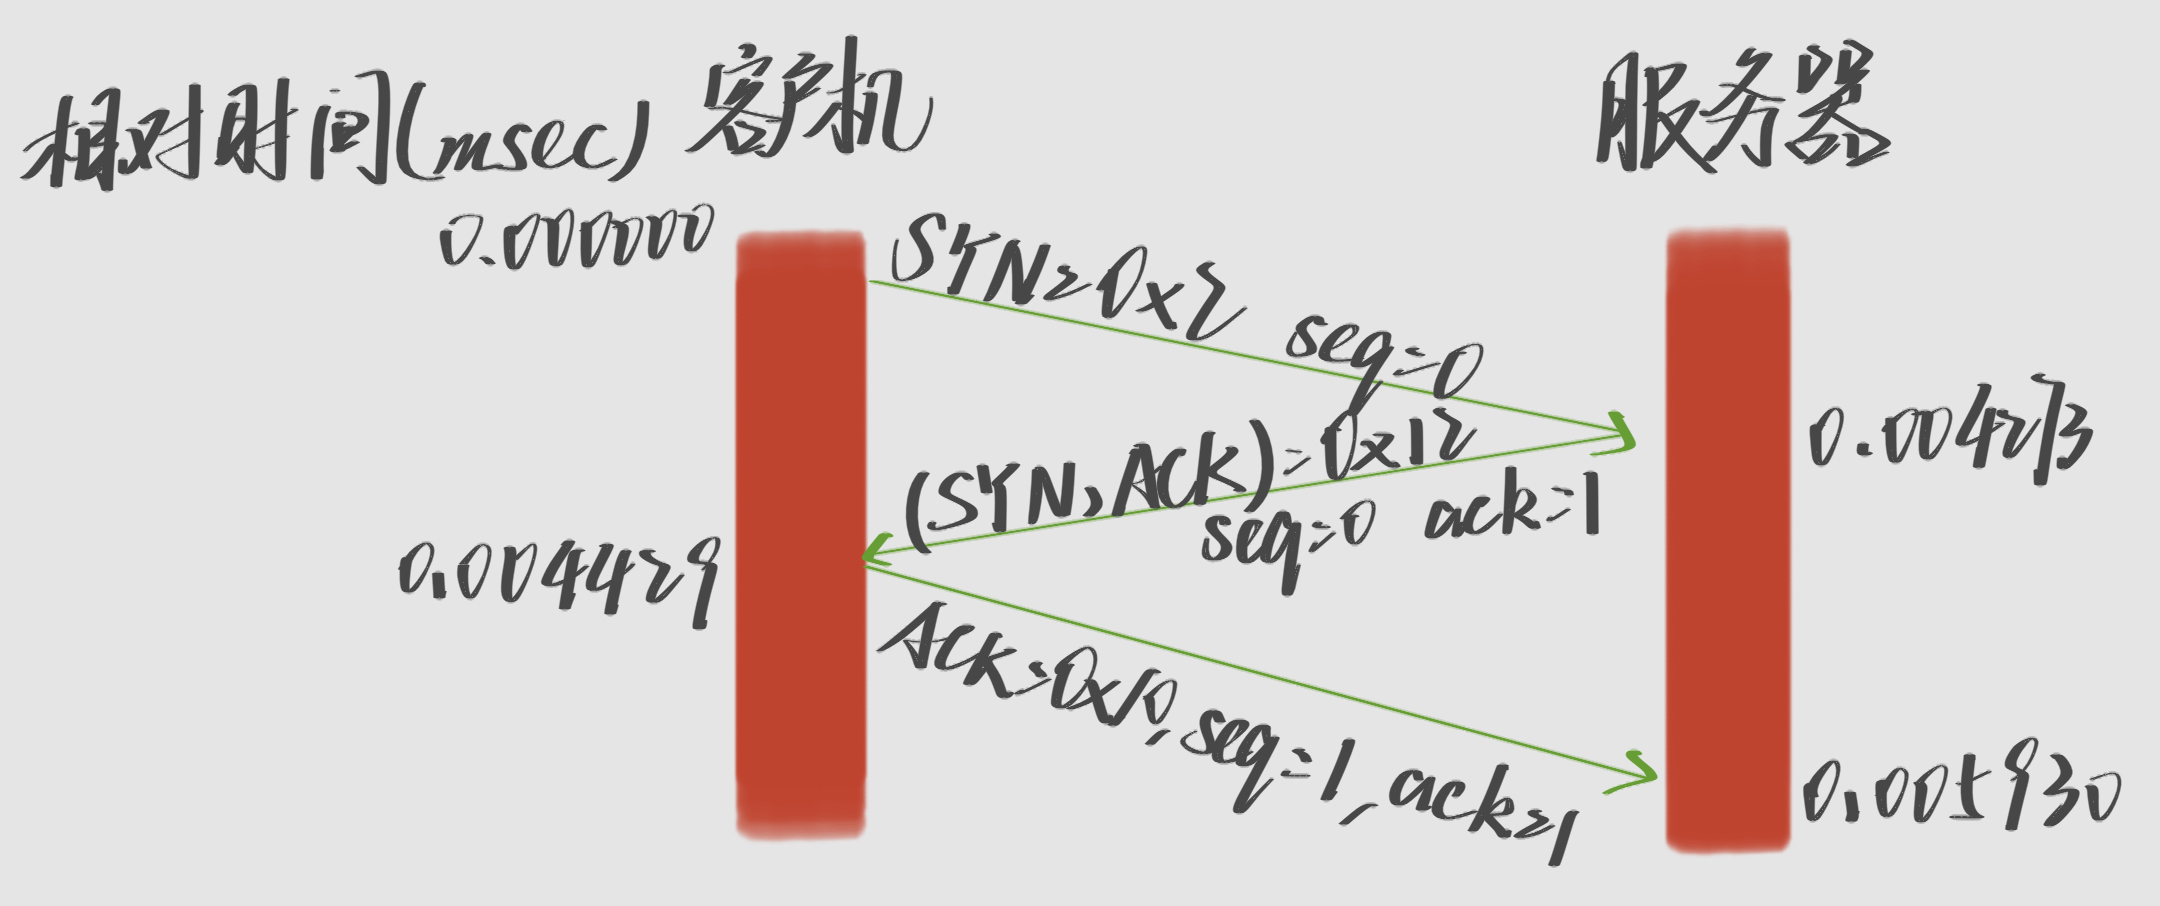 相对时间(msec) 客户机 服务器
0.000000
SYN=0x2 seq=0
0.004273
(SYN,ACK)=0x12
seq=0 ack=1
0.004429
ACK=0x10,seq=1,ack=1
0.005930